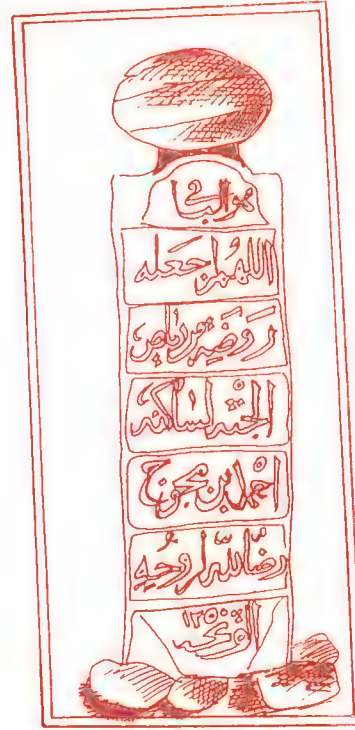 هو الباقى
اللهم اجعله
روضة من رياض
الجنة لساكنه
احمد بن
رضاً لله لروحه
الفاتحه ١٢٥٠